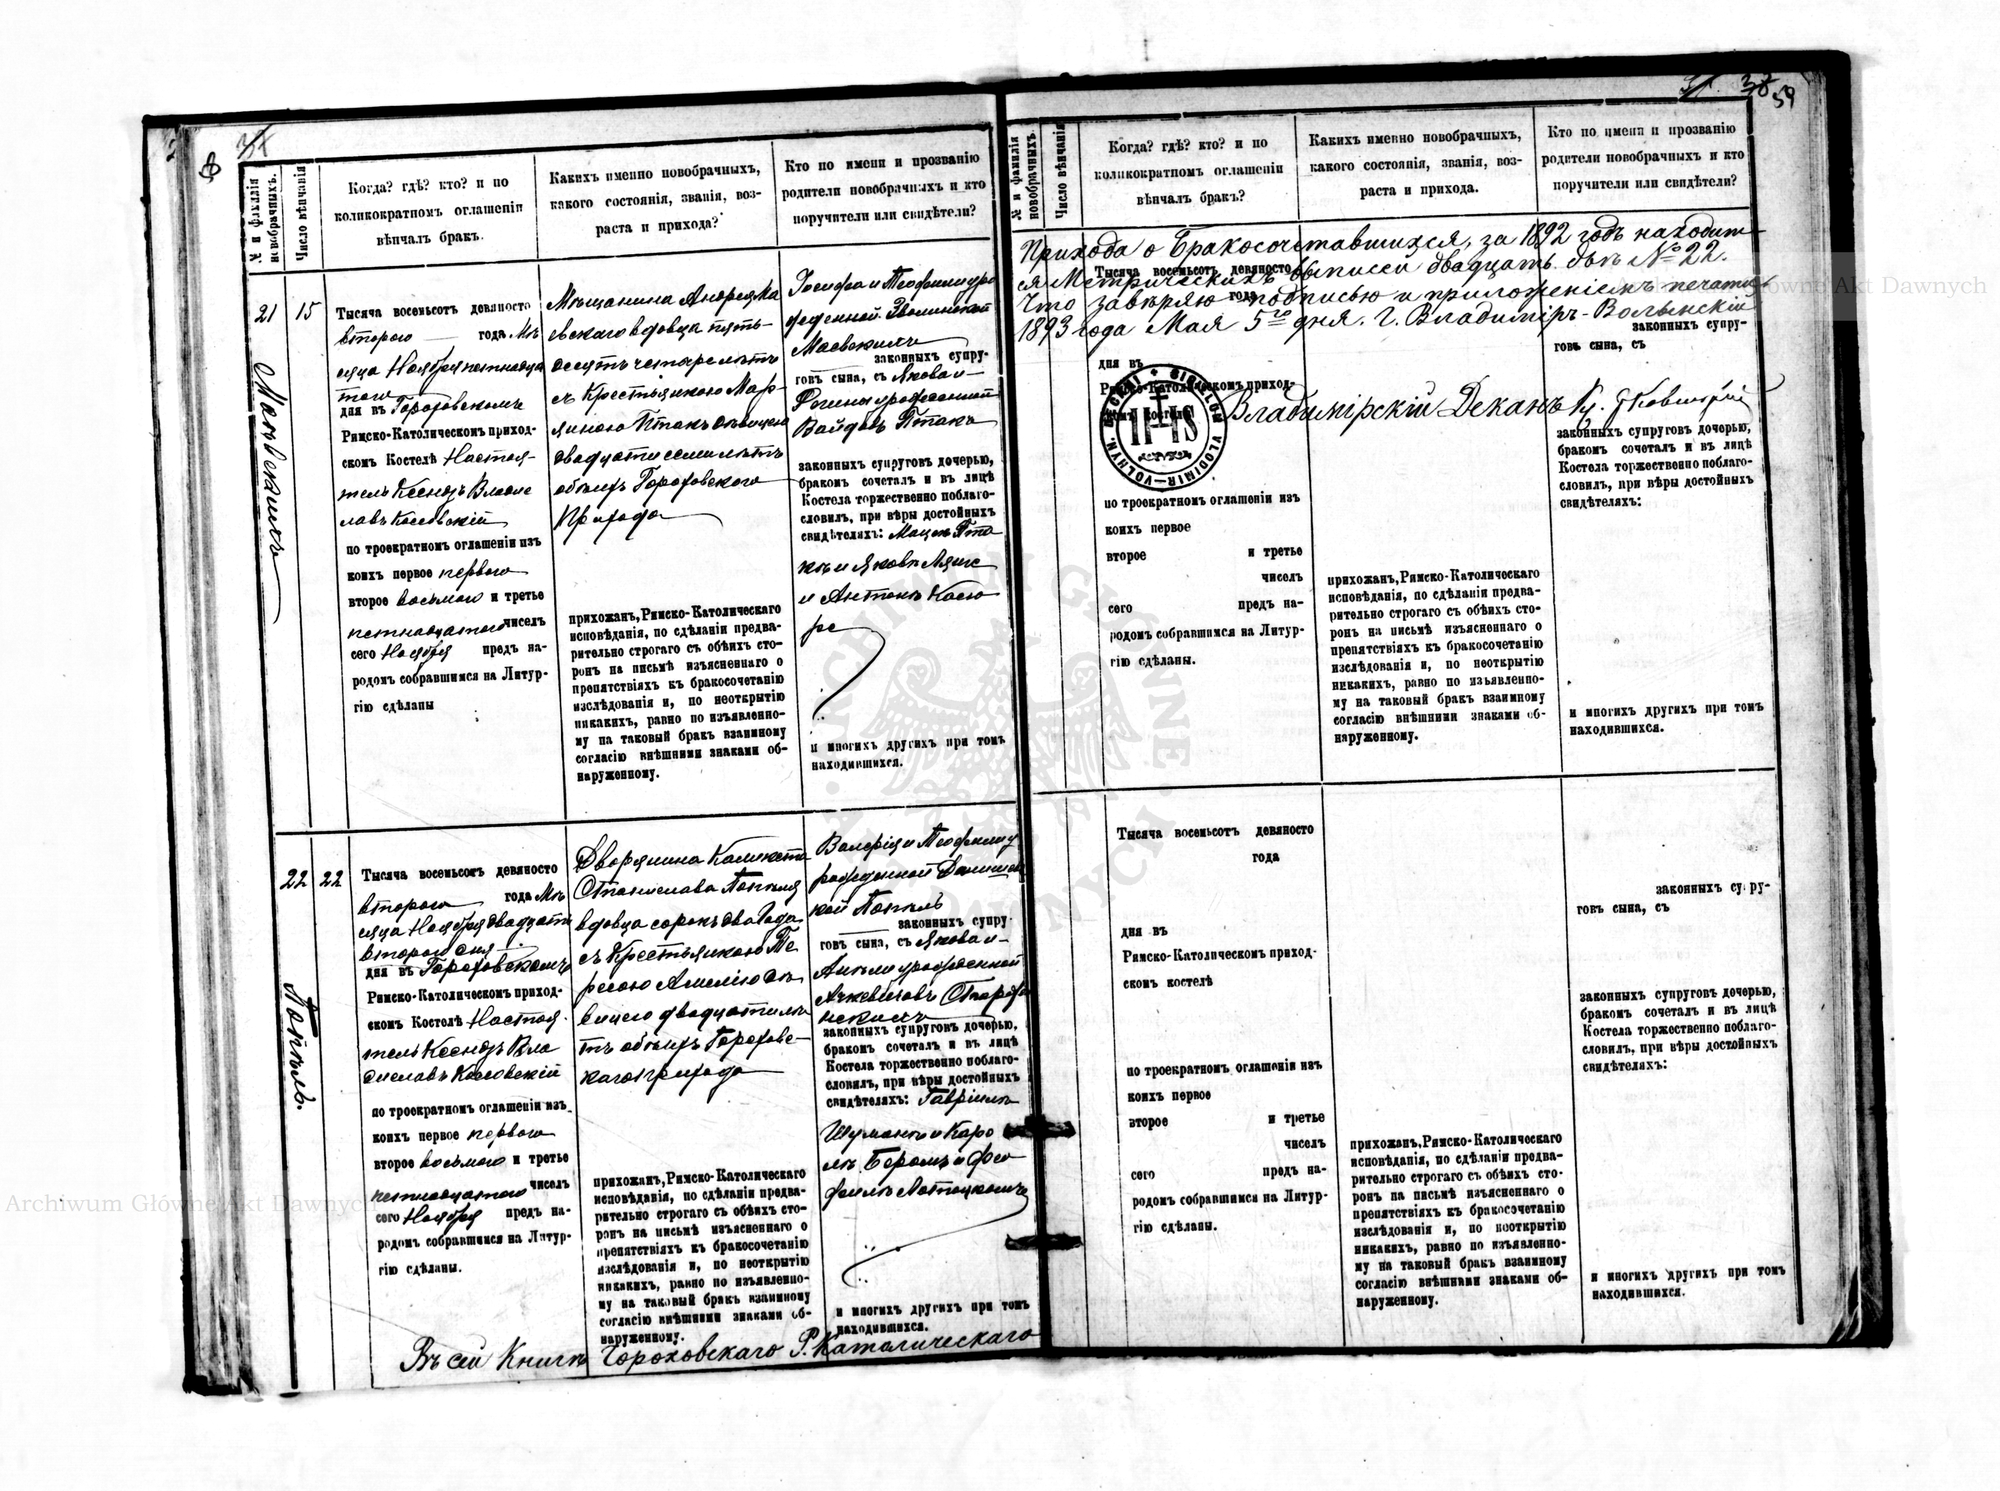 37
38 59
№ и фамилія новобрачныхъ.
Число вѣнчанія
Когда? гдѣ? кто? и по
коликократномъ оглашеніи
вѣнчалъ бракъ.
Какихъ именно новобрачныхъ,
какого состоянія, званія, воз-
раста и прихода?
Кто по имени и прозванію
родители новобрачныхъ и кто
поручители или свидѣтели?
21
15
Маевскаго
Тысяча восемьсотъ девяносто
второго года Мѣ
сяца Ноября пятнадца
таго
дня въ Гороховскомъ
Римско-Католическомъ приход-
скомъ Костелѣ Настоя-
тель Ксендзъ Владис
лавъ Косовскій
по троекратномъ оглашеніи изъ
коихъ первое перваго
второе восьмаго и третье
пятнадцатаго чиселъ
сего Ноября предъ на-
родомъ собравшимся на Литур-
гію сдѣланы
Мѣщанина Андрея Ма
евскаго вдовца пять-
десятъ четыре лѣтъ
съ Крестьянкою Мар-
янною Птакъ дѣвицею
двадцати семи лѣтъ
обоихъ Гороховскаго
Прихода
прихожанъ, Римско-Католическаго
исповѣданія, по сдѣланіи предва-
рительно строгаго съ обѣихъ сто-
ронъ на письмѣ изъясненнаго о
препятствіяхъ къ бракосочетанію
изслѣдованія и, по неоткрытію
никакихъ, равно по изъявленно-
му на таковый бракъ взаимному
согласію внѣшними знаками об-
наруженному.
Іосифа и Теофили уро
жденной Зволинской
Маевскихъ
законныхъ супру-
говъ сына, съ Якова и
Регины урожденной
Вайдовъ Птакъ
законныхъ супруговъ дочерью,
бракомъ сочеталъ и въ лицѣ
Костела торжественно поблаго-
словилъ, при вѣры достойныхъ
свидѣтеляхъ: Мацеѣ Пта
къ и Яковѣ
и Антонѣ
и многихъ другихъ при томъ
находившихся.
22
22
Попель.
Тысяча восемьсотъ девяносто
второго года Мѣ
сяца Ноября двадцать
второго дня
дня въ Гороховскомъ
Римско-Католическомъ приход-
скомъ Костелѣ Настоя-
тель Ксендзъ Вла
диславъ Косовскій
по троекратномъ оглашеніи изъ
коихъ первое перваго
второе восьмаго и третье
пятнадцатаго чиселъ
сего Ноября предъ на-
родомъ собравшимся на Литур-
гію сдѣланы.
Дворянина Каликста
Станислава Попеля
вдовца сорокъ два года
съ Крестьянкою Те
ресою Амелію дѣ
вицею двадцати лѣ
тъ обоихъ Гороховс-
каго прихода
прихожанъ, Римско-Католическаго
исповѣданія, по сдѣланіи предва-
рительно строгаго съ обѣихъ сто-
ронъ на письмѣ изъясненнаго о
препятствіяхъ къ бракосочетанію
изслѣдованія и, по неоткрытію
никакихъ, равно по изъявленно-
му на таковый бракъ взаимному
согласію внѣшними знаками об-
наруженному.
Валерія и Теофили у
рожденной
Попель
законныхъ супру-
говъ сына, съ Якова и
урожденной
законныхъ супруговъ дочерью,
бракомъ сочеталъ и въ лицѣ
Костела торжественно поблаго-
словилъ, при вѣры достойныхъ
свидѣтеляхъ: Гавріилѣ
и Каро
лѣ
и многихъ другихъ при томъ
находившихся.
Въ сей Книгѣ Гороховскаго Р. Католическаго
№ и фамилія новобрачныхъ.
Число вѣнчанія
Когда? гдѣ? кто? и по
коликократномъ оглашеніи
вѣнчалъ бракъ?
Какихъ именно новобрачныхъ,
какого состоянія, званія, воз-
раста и прихода.
Кто по имени и прозванію
родители новобрачныхъ и кто
поручители или свидѣтели?
Прихода о Бракосочетавшихся, за 1892 годъ находит-
ся Метрическихъ выписей двадцать двѣ №22.
Что завѣряю подписью и приложеніемъ печати
1893 года Мая 5го дня. г. Владиміръ-Волынскій
Владимірскій Деканъ Кс.
Тысяча восемьсотъ девяносто
года
дня въ
Римско-Католическомъ приход-
скомъ костелѣ
по троекратномъ оглашеніи изъ
коихъ первое
второе и третье
чиселъ
сего предъ на-
родомъ собравшимся на Литур-
гію сдѣланы.
прихожанъ, Римско-Католическаго
исповѣданія, по сдѣланіи предва-
рительно строгаго съ обѣихъ сто-
ронъ на письмѣ изъясненнаго о
препятствіяхъ къ бракосочетанію
изслѣдованія и, по неоткрытію
никакихъ, равно по изъявленно-
му на таковый бракъ взаимному
согласію внѣшними знаками об-
наруженному.
законныхъ супру-
говъ сына, съ
законныхъ супруговъ дочерью,
бракомъ сочеталъ и въ лицѣ
Костела торжественно поблаго-
словилъ, при вѣры достойныхъ
свидѣтеляхъ:
и многихъ другихъ при томъ
находившихся.
SIGILLUM VLODIMIR-VOLHYN. DECANI
IHS
Тысяча восемьсотъ девяносто
года
дня въ
Римско-Католическомъ приход-
скомъ костелѣ
по троекратномъ оглашеніи изъ
коихъ первое
второе и третье
чиселъ
сего предъ на-
родомъ собравшимся на Литур-
гію сдѣланы.
прихожанъ, Римско-Католическаго
исповѣданія, по сдѣланіи предва-
рительно строгаго съ обѣихъ сто-
ронъ на письмѣ изъясненнаго о
препятствіяхъ къ бракосочетанію
изслѣдованія и, по неоткрытію
никакихъ, равно по изъявленно-
му на таковый бракъ взаимному
согласію внѣшними знаками об-
наруженному.
законныхъ супру-
говъ сына, съ
законныхъ супруговъ дочерью,
бракомъ сочеталъ и въ лицѣ
Костела торжественно поблаго-
словилъ, при вѣры достойныхъ
свидѣтеляхъ:
и многихъ другихъ при томъ
находившихся.
Archiwum Główne Akt Dawnych
ARCHIWUM GŁÓWNE AKT DAWNYCH